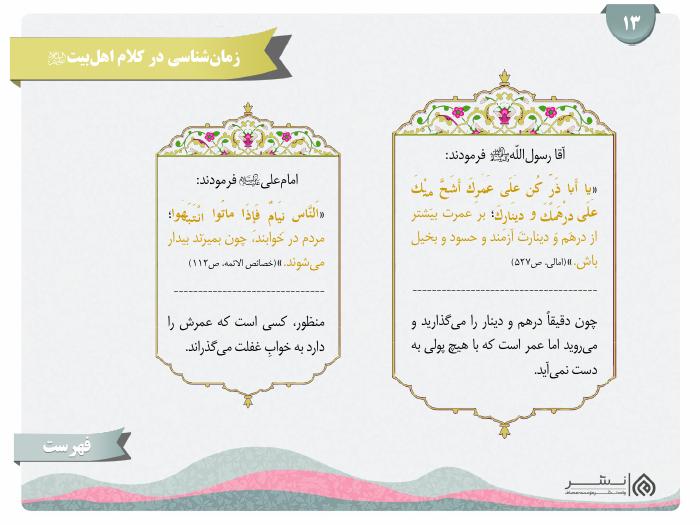 ۱۳
زمان‌شناسی در کلام اهل‌بیت
آقا رسول‌اللّه فرمودند:
«یا أَبا ذَرٍّ کُن عَلَی عُمرِكَ أَشَحَّ مِنْكَ
عَلَی دِرْهَمِكَ وَ دینارِكَ؛ بر عمرت بیشتر
از درهم و دینارت آزمند و حسود و بخیل
باش.»(امالی، ص۵۲۷)
چون دقیقاً درهم و دینار را می‌گذارید و
می‌روید اما عمر است که با هیچ پولی به
دست نمی‌آید.
امام‌علی فرمودند:
«اَلنَّاس نیَامٌ فَإِذَا ماتُوا انْتَبَهُوا؛
مردم در خوابند، چون بمیرند بیدار
می‌شوند.»(خصائص الائمه، ص۱۱۲)
منظور، کسی است که عمرش را
دارد به خوابِ غفلت می‌گذراند.
فهرست
نشر